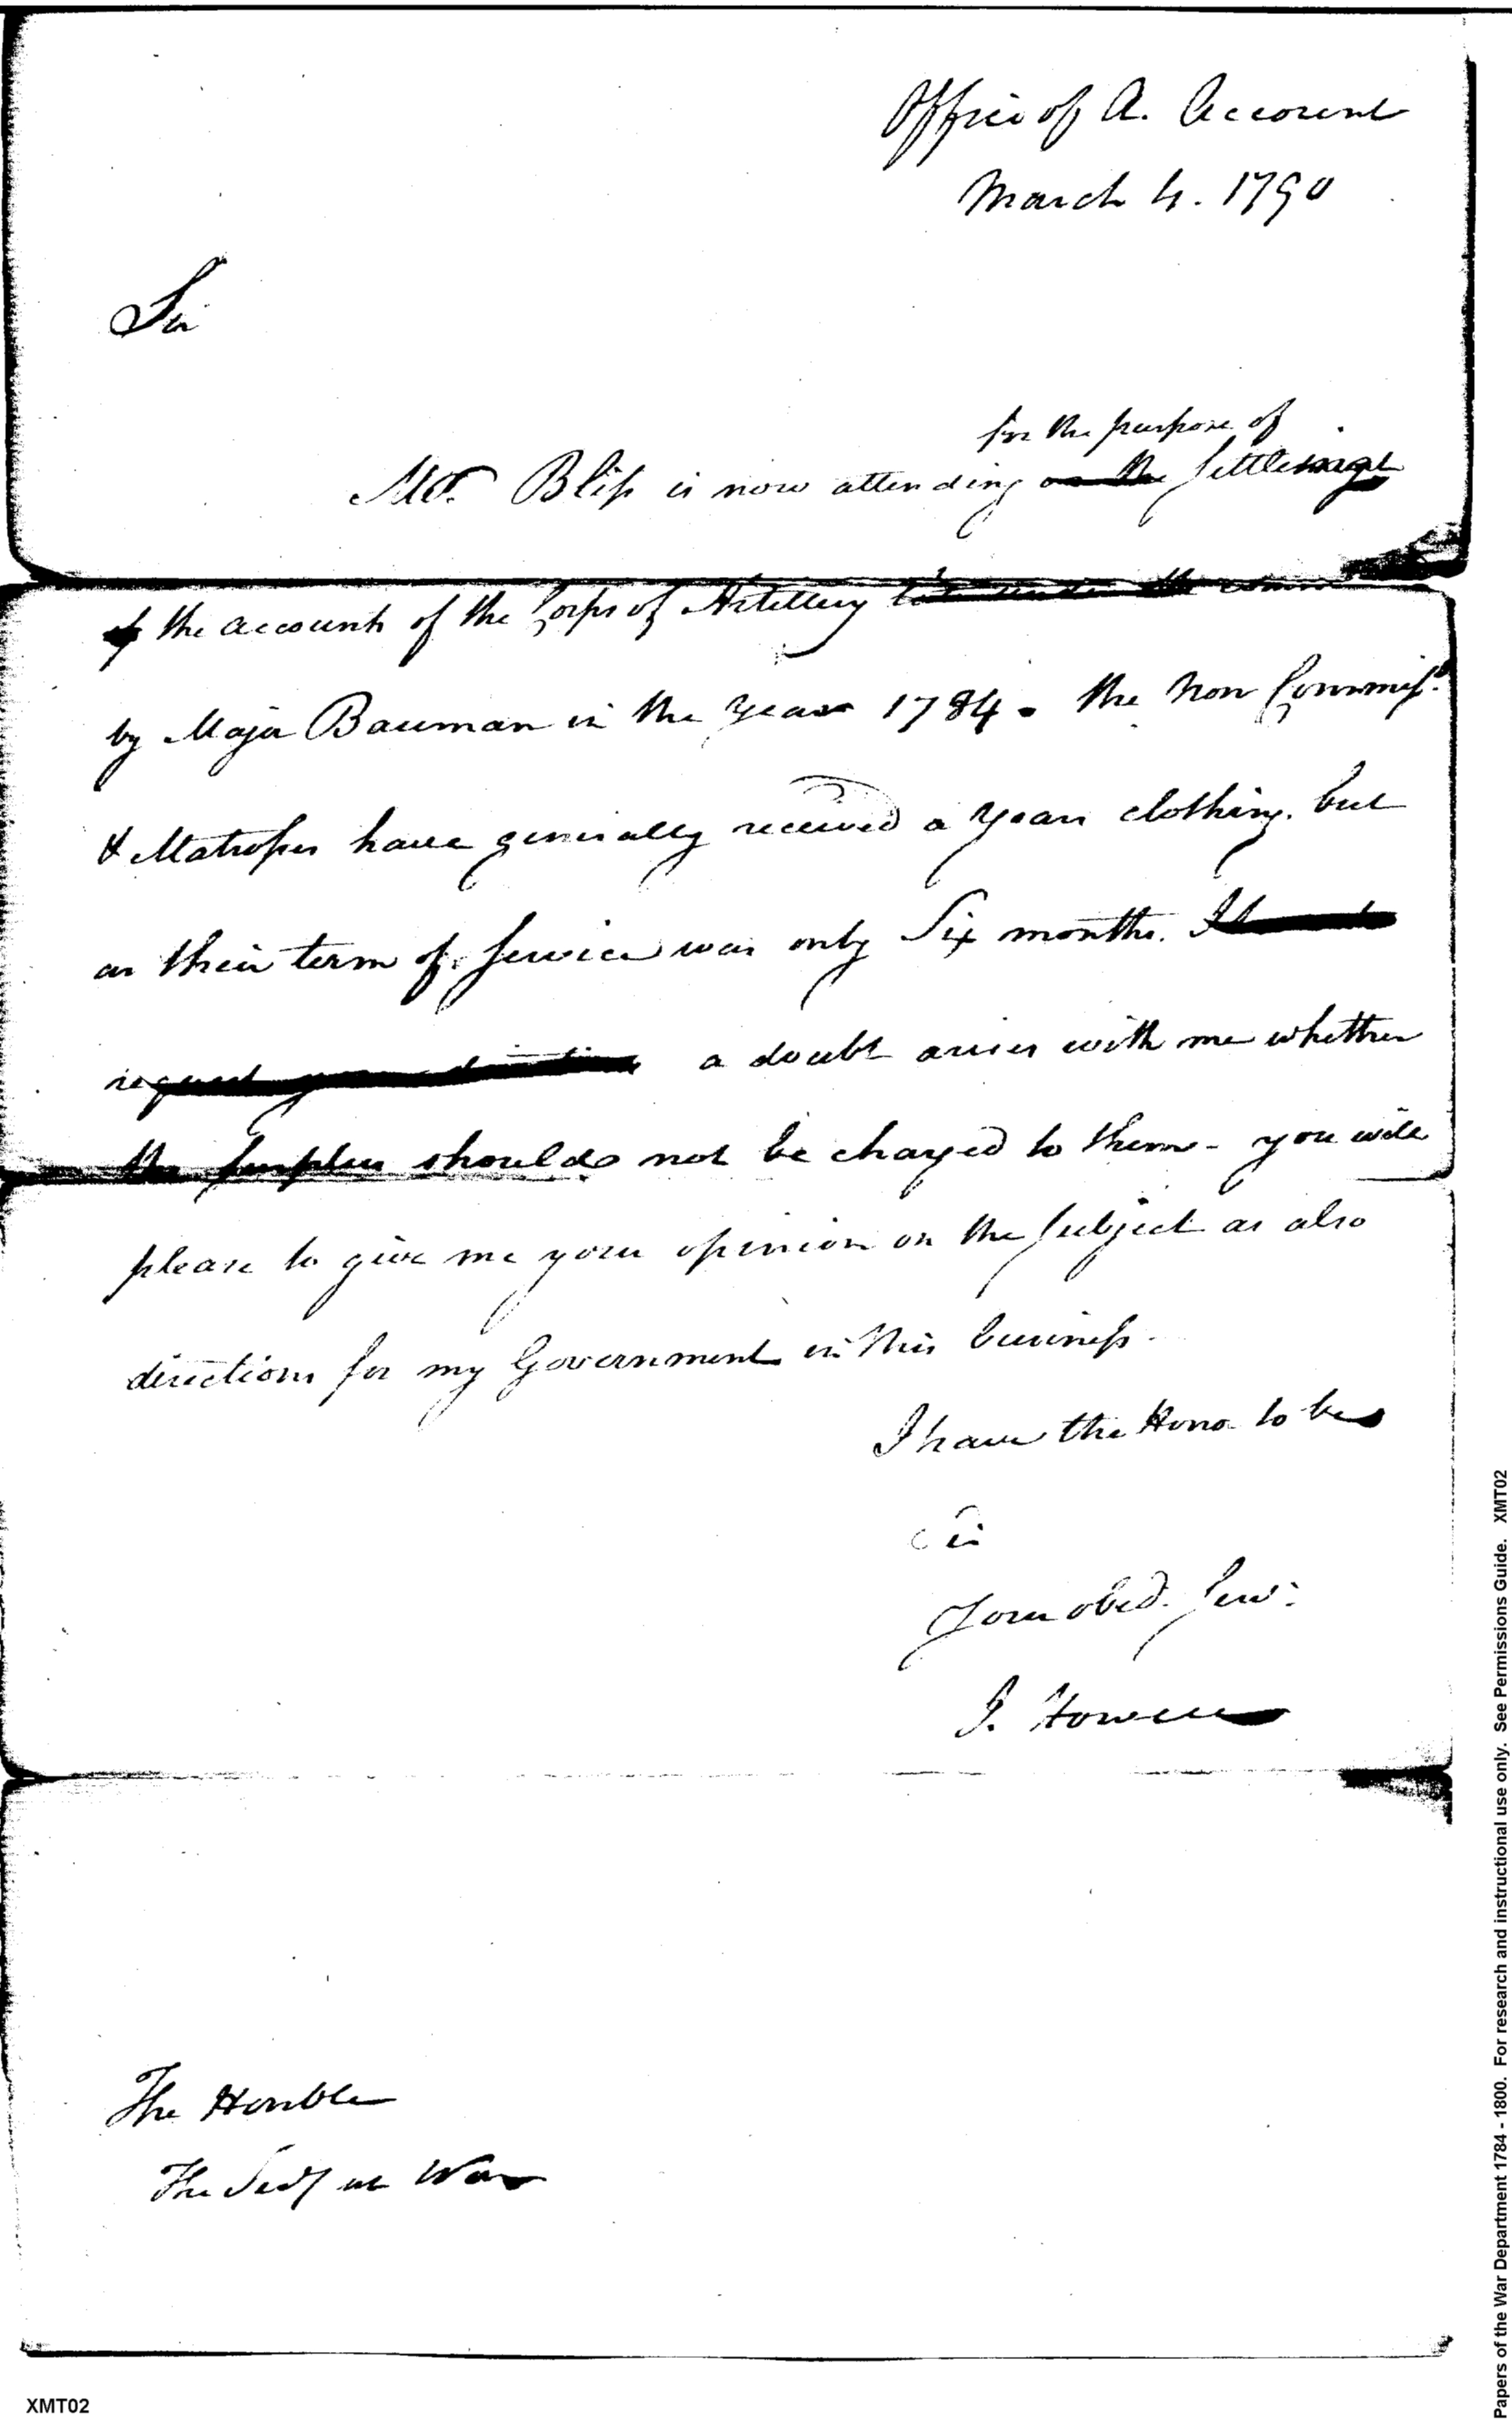 Office of A. Account
March 4. 1790
Sir
for the purpose of
Mr. Bliss is now attending on the Settling
of the accounts of the Corps of Artillery
by Major Bauman in the year 1784. the Non Commissd.
& Matrosses have generally received a years clothing. but
as their term of Service was only Six months. I
request your directions a doubt arises with me whether
the surplus should not be charged to them - you will
please to give me your opinion on the subject as also
directions for my Government in this business.
I have the Honor to be
Sir
Your obed. Serv:
J. Howell
The Honble
The Secy at War
XMT02
Papers of the War Department 1784 - 1800. For research and instructional use only. See Permissions Guide. XMT02